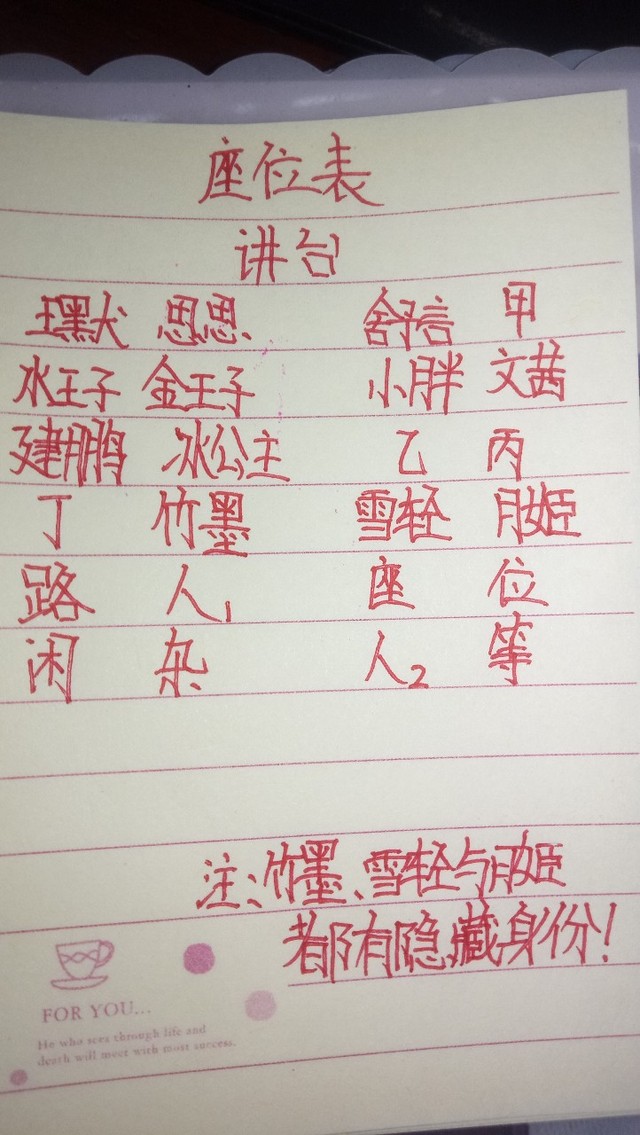 座位表
讲台
王默 思思 舒言 甲
水王子 金王子 小胖 文茜
建鹏 冰公主 乙 丙
丁 竹墨 雪轻 月姬
路 人1 座 位
闲 杂 人2 等
注:竹墨、雪轻与月姬
都有隐藏身份!
FOR YOU...
He who sees through life and
death will meet with most success.